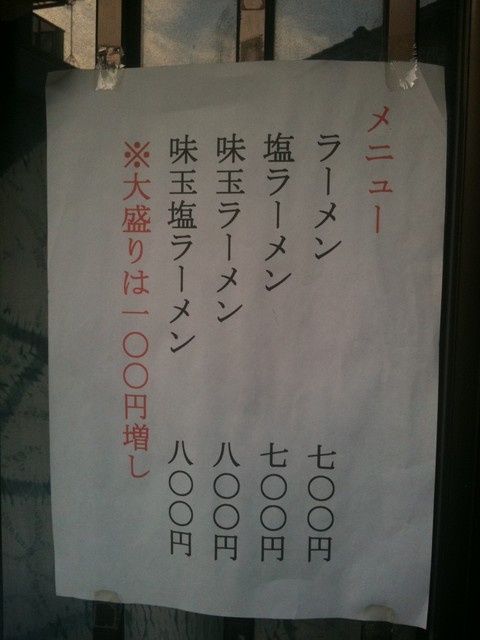 メニュー
ラーメン 七〇〇円
塩ラーメン 七〇〇円
味玉ラーメン 八〇〇円
味玉塩ラーメン 八〇〇円
※大盛りは一〇〇円増し